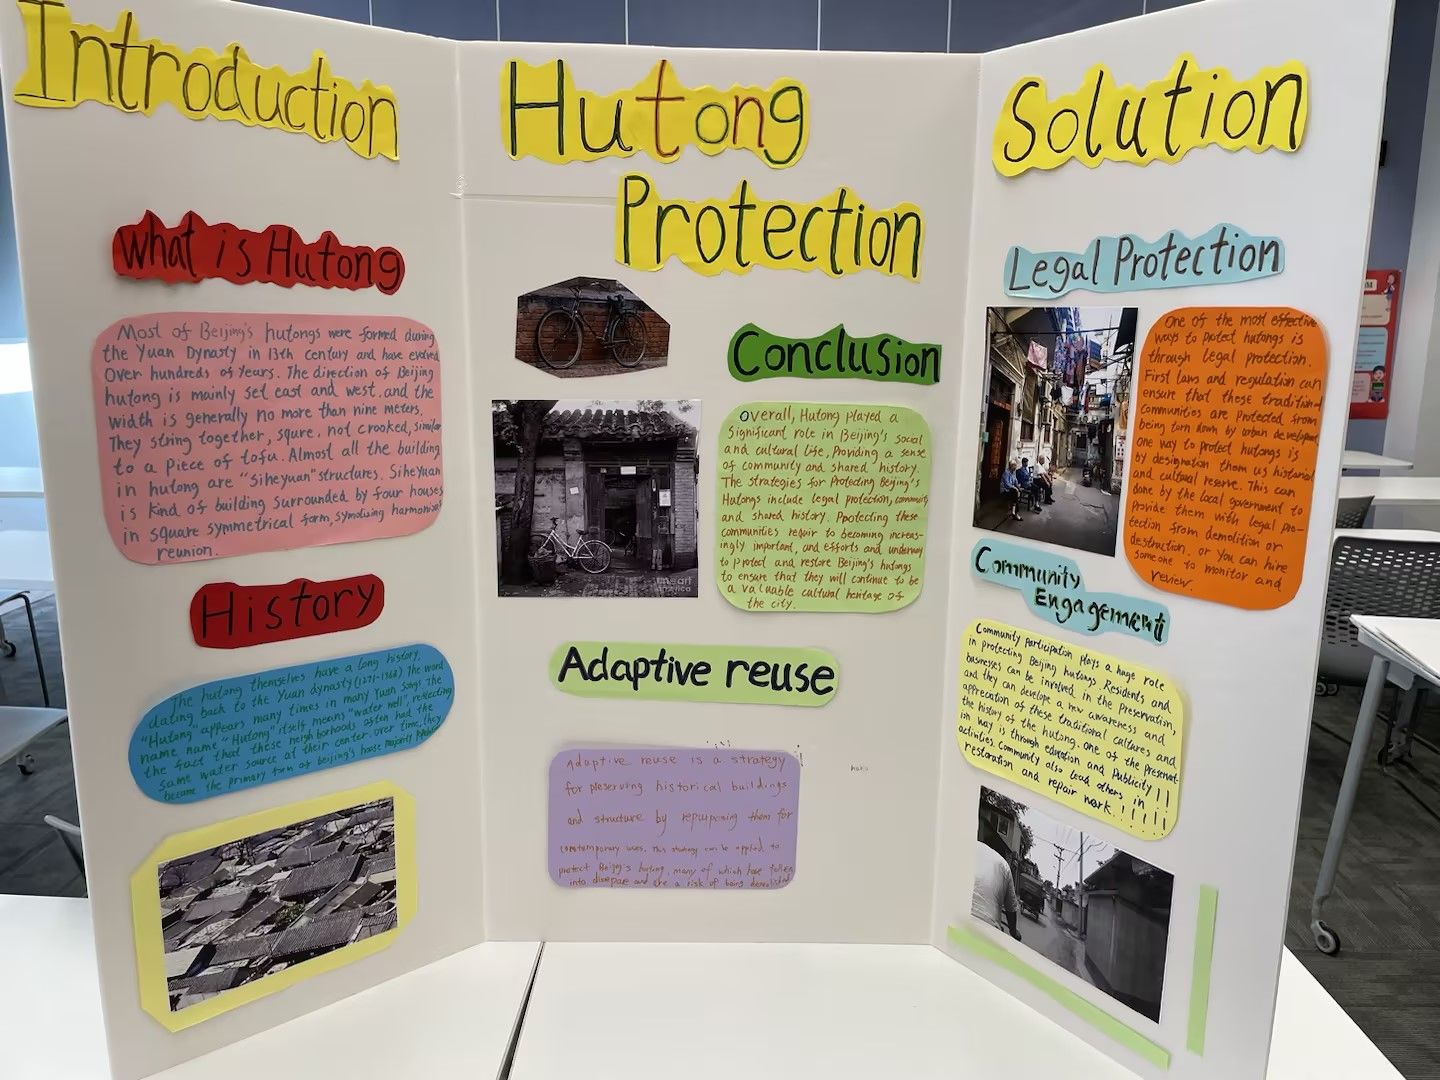 Introduction
what is Hutong
Most of Beijing's hutongs were formed during
the Yuan Dynasty in 13th century and have evolved
Over hundreds of Years. The direction of Beijing
hutong is mainly set east and west. and the
width is generally no more than nine meters.
They string together, squre. not crooked, similar
to a piece of tofu. Almost all the building
in hutong are "siheyuan" structures. Siheyuan
is kind of building surrounded by four houses
in square symmetrical form, symolizing harmonious
reunion.
History
The hutong themselves have a long history,
dating back to the Yuan dynasty (1271-1368) The word
"Hutong" appears many times in many Yuan Songs. The
name name "Hutong" itself means "water well", reflecting
the fact that these neighborhoods often had the
same water source at their center. over time, they
became the primary form of beijing's house
Hutong
Protection
Conclusion
Overall, Hutong played a
Significant role in Beijing's social
and cultural life, Providing a sense
of community and shared history.
The strategies for Protecting Beijing's
Hutongs include legal protection, community
and shared history. Protecting these
communities requir to becoming increas-
ingly important, and efforts and underway
to protect and restore Beijing's hutongs
to ensure that they will continue to be
a valuable cultural heritage of
the city.
fine art
america
Adaptive reuse
Adaptive reuse is a strategy
for preserving historical buildings
and structure by repurposing them for
contemporary uses. this strategy can be applied to
protect Beijing's hutong, many of which have fallen
into disrepare and are a risk of being demolished
Solution
Legal Protection
One of the most effective
ways to protect hutongs is
through legal protection.
First laws and regulation can
ensure that these traditional
communities are protected from
being torn down by urban development
one way to protect hutongs is
by designation them us historical
and cultural reserve. This can
done by the local government to
provide them with legal pro-
tection from demolition or
destruction. or you can hire
someone to monitor and
review.
Community
Engagement
Community participation plays a huge role
in protecting Beijing hutongs. Residents and
businesses can be involved in the preservation,
and they can develope a new awareness and
appreciation of these traditional cultures and
the history of the hutong. one of the preservat
ion way is through education and Publicity!!
activities. Community also lead others in
restoration and repair work.!!!!!!